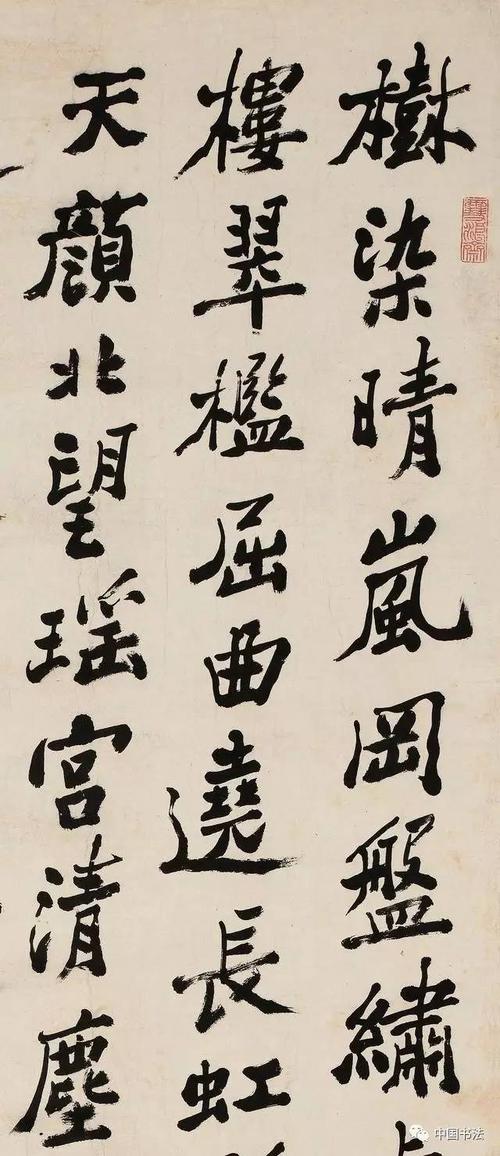 樹染晴嵐岡盤繡
樓翠檻屈曲遶長虹
天顏北望瑤宮清塵
中国书法